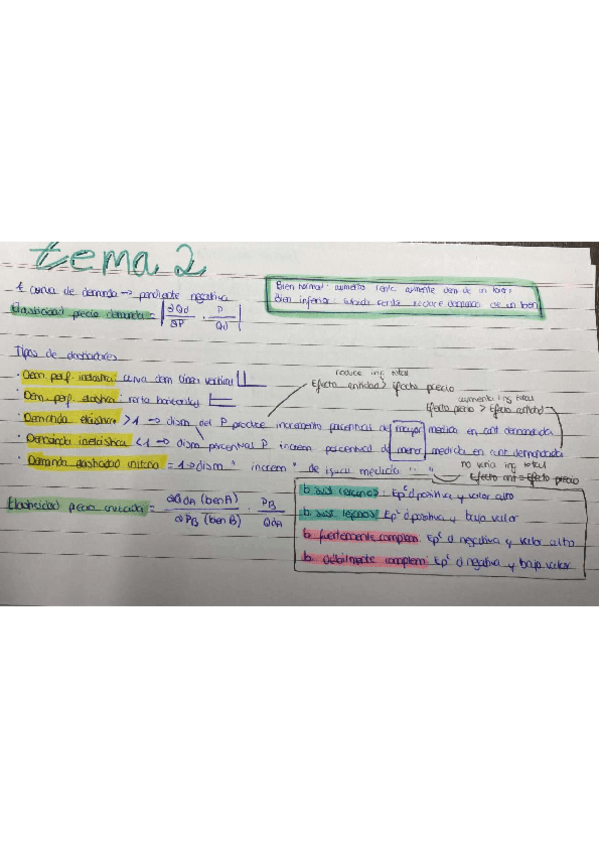 tema 2
curva de demanda → pendiente negativa
Elasticidad precio demanda = | ∂Qd / ∂P · P / Qd |
Bien normal: aumento renta aumenta dem de un bien
Bien inferior: renta reduce demanda de un bien
Tipos de
· Dem perf. inelástica: curva dem línea vertical
· Dem perf. elástica: recta horizontal
reduce ing total
Efecto cantidad > Efecto precio
aumenta ing total
Efecto precio > Efecto cantidad
· Demanda elástica > 1 → dism del P produce incremento porcentual de mayor medida en cant demandada
· Demanda inelástica < 1 → dism porcentual P increm porcentual de menor medida en cant demandada
· Demanda elasticidad unitaria = 1 → dism " increm " de igual medida " "
no varia ing total
Efecto cant = Efecto precio
Elasticidad precio cruzada = ∂QdA (bien A) / ∂PB (bien B) · PB / QdA
b sust cercanos: Ep^c d positiva y valor alto
b. sust. lejanos: Ep^c d positiva y bajo valor
b. fuertemente complem: Ep^c d negativa y valor alto
b. débilmente complem: Ep^c d negativa y bajo valor